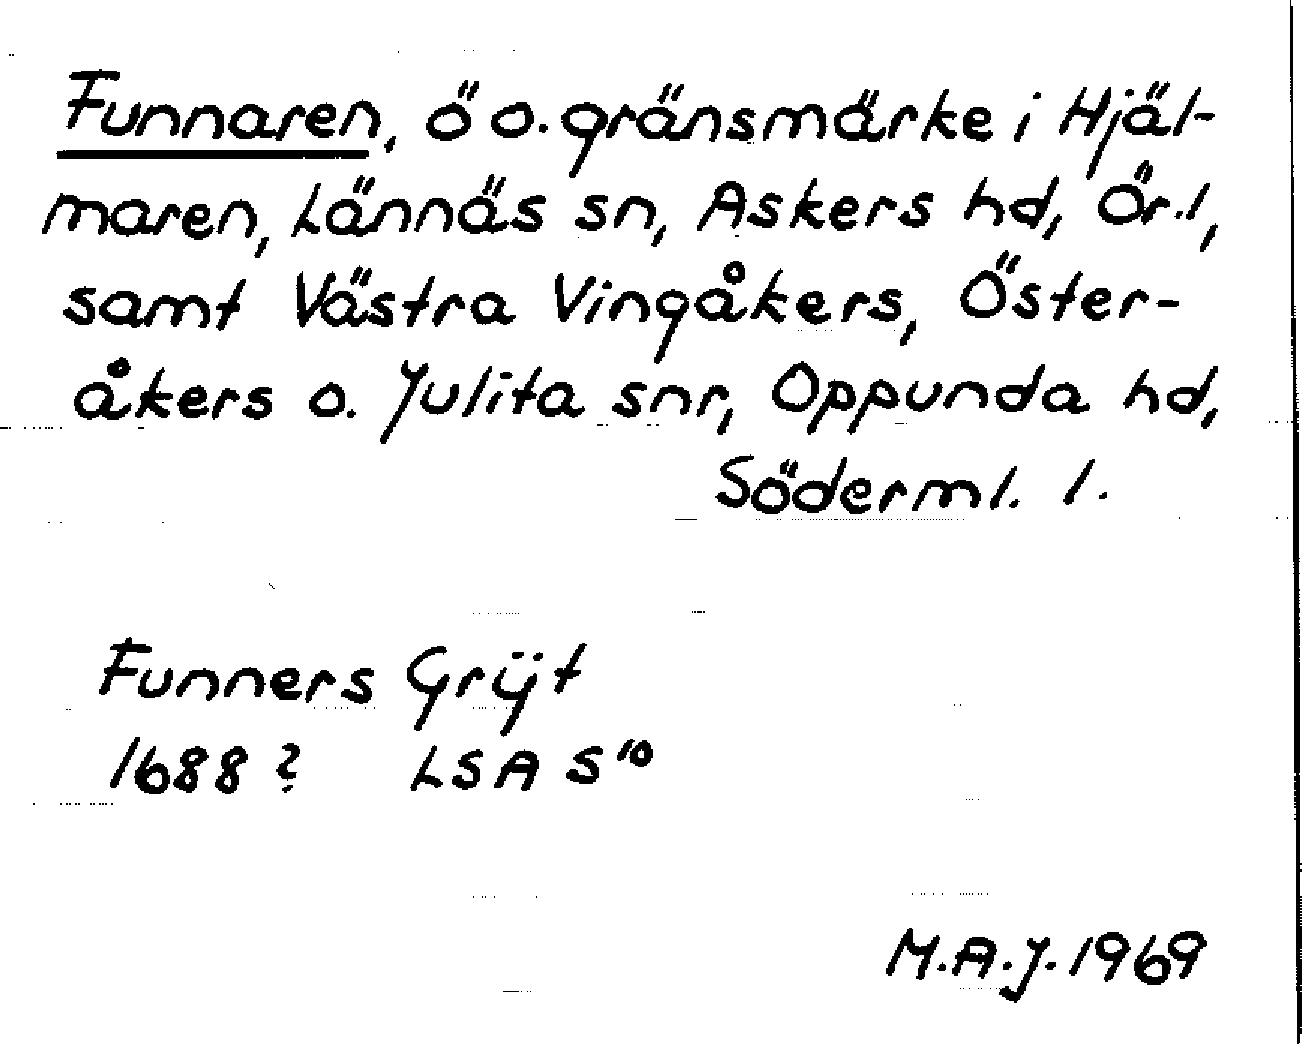 Funnaren, ö o. gränsmärke i Hjäl-
maren, Lännäs sn, Askers hd, Ör. l,
samt Västra Vingåkers, Öster-
åkers o. Julita snr, Oppunda hd,
Söderml. l.
Funners Grÿt
1688? LSA S"º
M.A.J. 1969